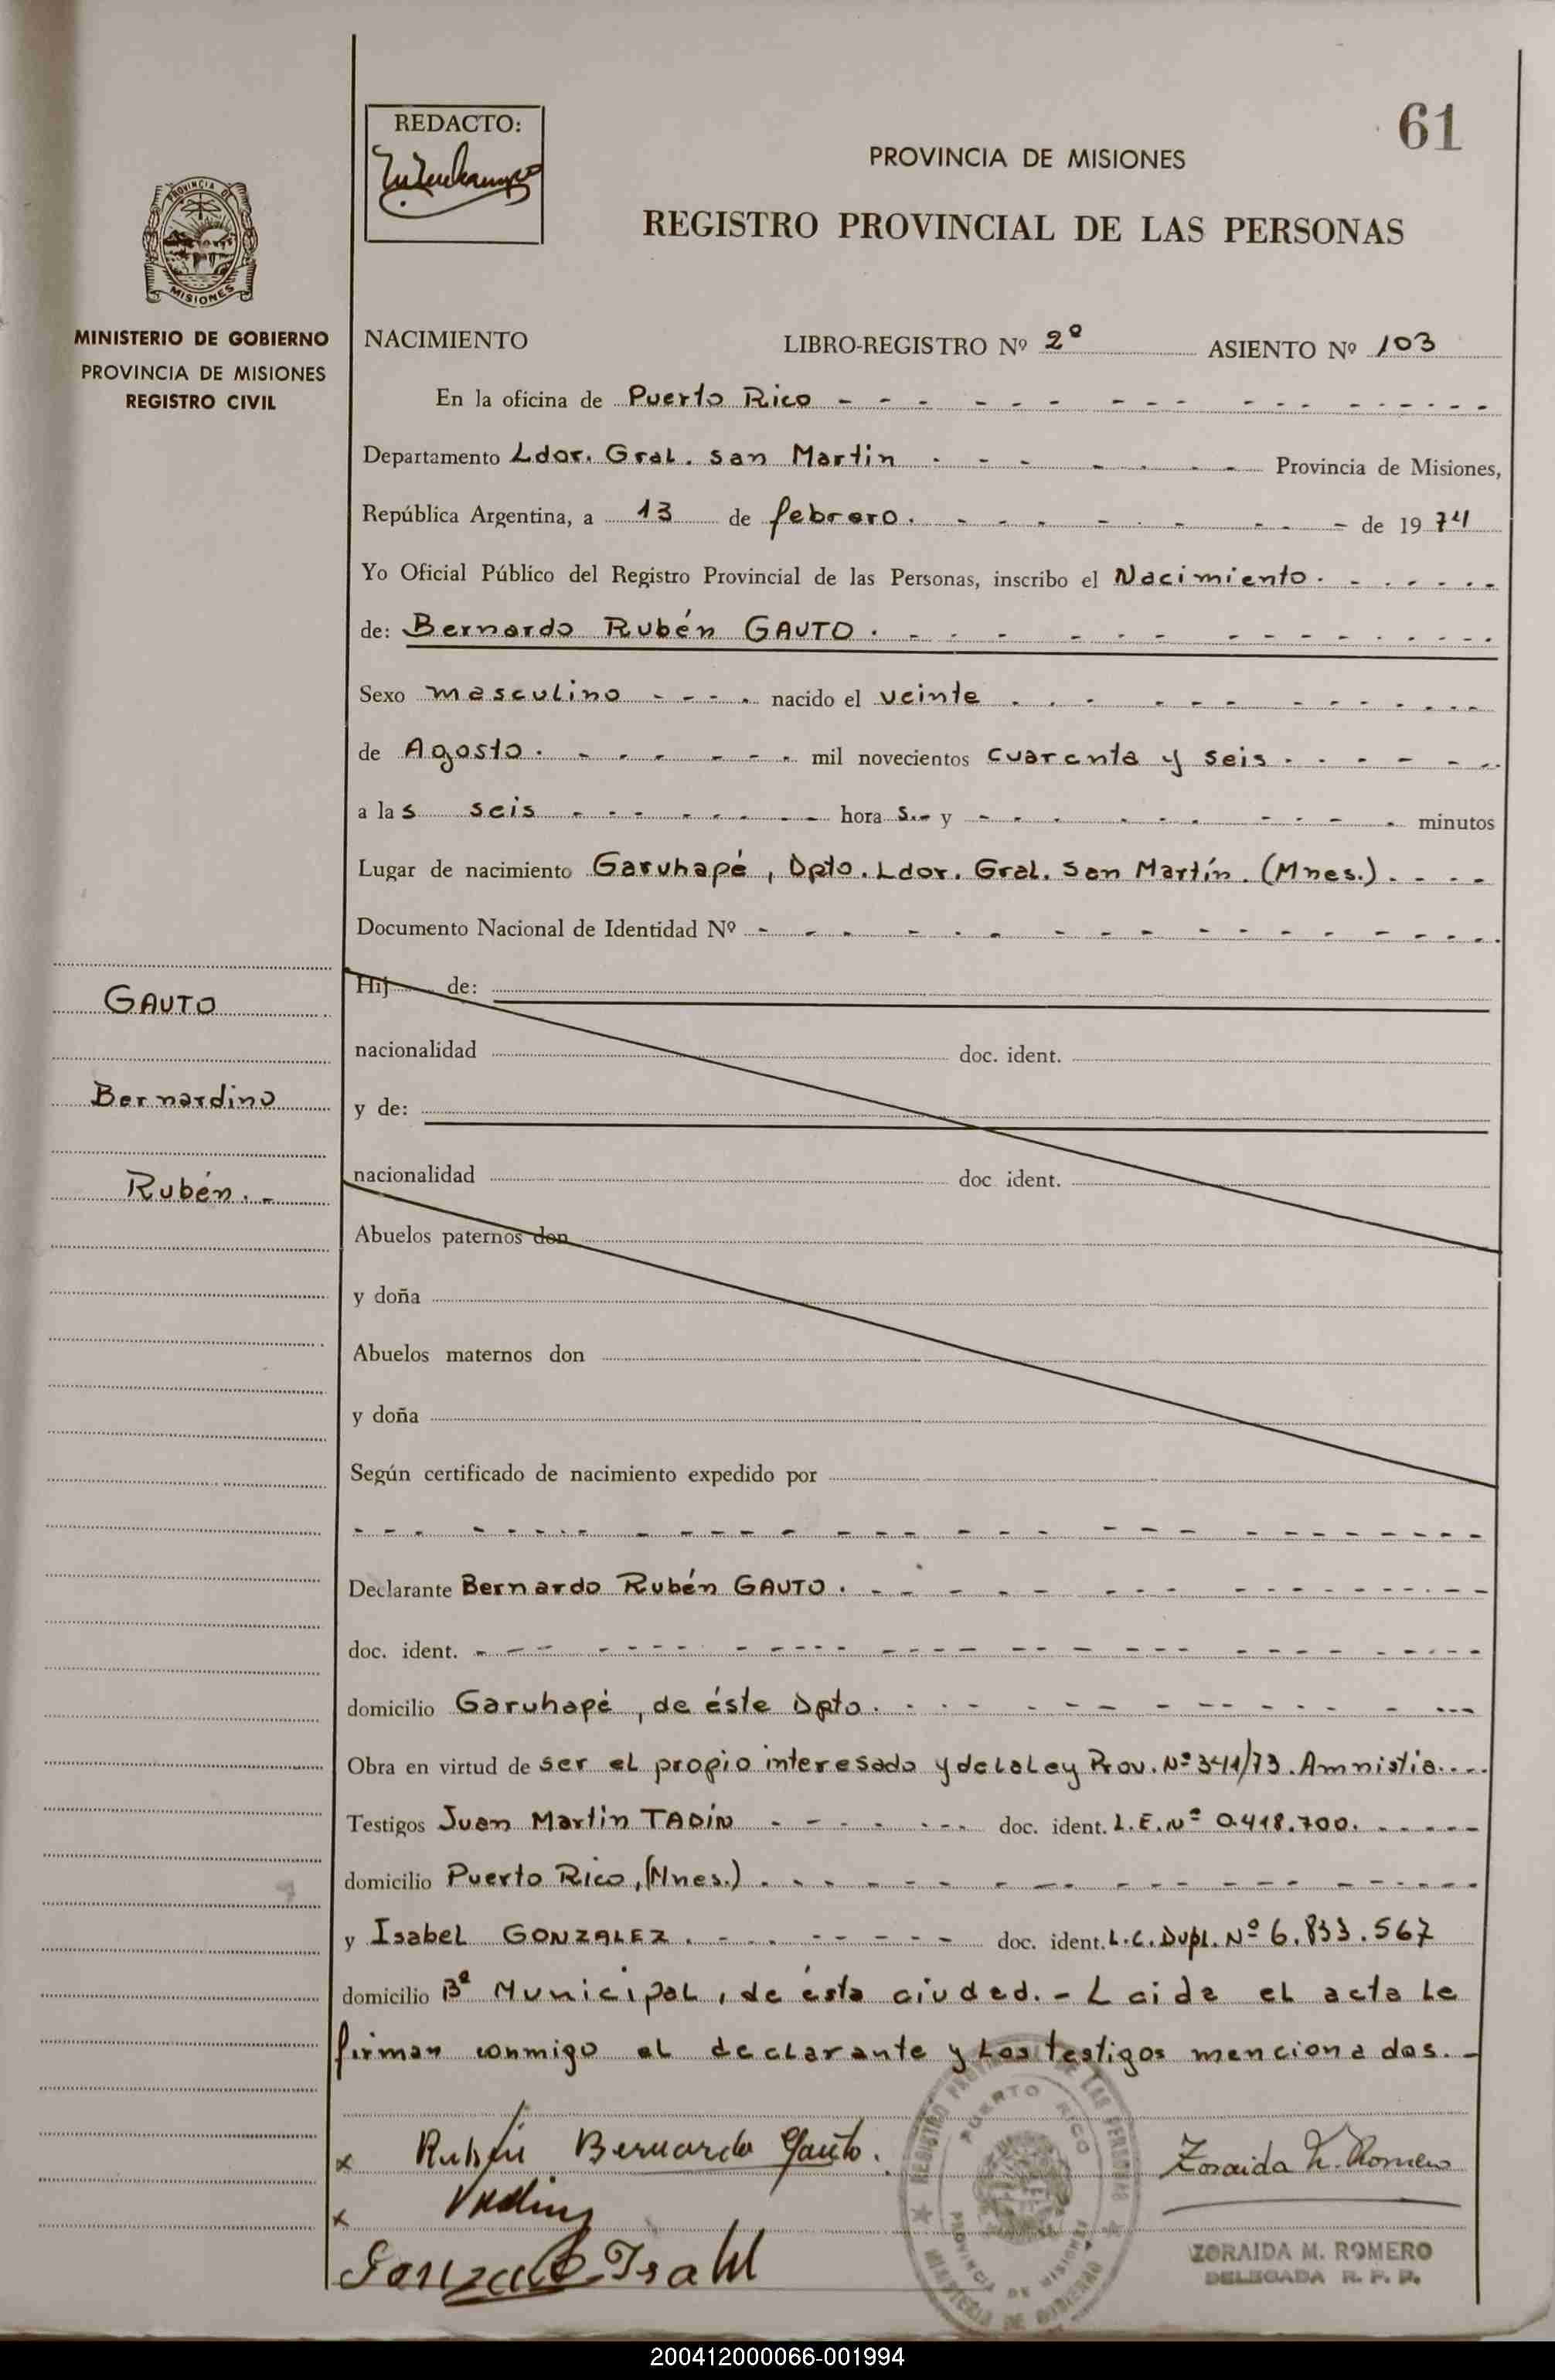 61
REDACTO:
PROVINCIA DE MISIONES
REGISTRO PROVINCIAL DE LAS PERSONAS
PROVINCIA DE
MISIONES
MINISTERIO DE GOBIERNO
PROVINCIA DE MISIONES
REGISTRO CIVIL
NACIMIENTO LIBRO-REGISTRO Nº 2º ASIENTO Nº 103
En la oficina de Puerto Rico
Departamento Ldor. Gral. San Martin Provincia de Misiones,
República Argentina, a 13 de febrero. de 1974
Yo Oficial Público del Registro Provincial de las Personas, inscribo el Nacimiento.
de: Bernardo Rubén GAUTO.
Sexo masculino nacido el veinte
de Agosto. mil novecientos cuarenta y seis.
a las seis horas.- y minutos
Lugar de nacimiento Garuhapé, Dpto. Ldor. Gral. San Martín. (Mnes.).
Documento Nacional de Identidad Nº
GAUTO
Bernardino
Rubén.-
Hij de:
nacionalidad doc. ident.
y de:
nacionalidad doc ident.
Abuelos paternos don
y doña
Abuelos maternos don
y doña
Según certificado de nacimiento expedido por
Declarante Bernardo Rubén GAUTO.
doc. ident.
domicilio Garuhapé, de éste Dpto.
Obra en virtud de ser el propio interesado y de la Ley Prov. Nº 341/73. Amnistia.
Testigos Juan Martin TADÍN doc. ident. L.E. Nº 0.418.700.
domicilio Puerto Rico, (Mnes.).
y Isabel GONZALEZ. doc. ident. L.C. Dupl. Nº 6.833.567
domicilio Bº Municipal, de ésta ciudad.- Leida el acta le
firman conmigo el declarante y los testigos mencionados.-
x Rubén Bernardo Gauto.
Zoraida M. Romero
x
Gonzalez Isabel
REGISTRO PROVINCIAL DE LAS PERSONAS
PUERTO RICO
PROVINCIA DE MISIONES
MINISTERIO DE GOBIERNO
ZORAIDA M. ROMERO
DELEGADA R. P. P.
200412000066-001994